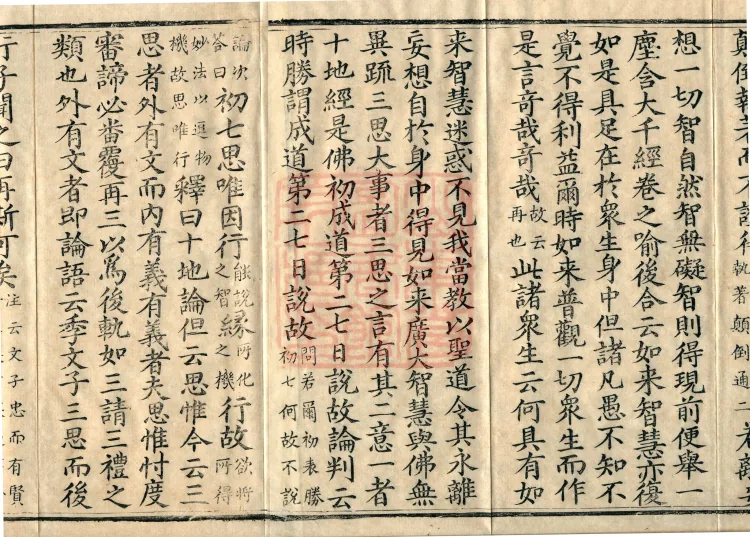 顛倒執著而不證得執著顛倒通二若離
想一切智自然智無礙智則得現前便舉一
塵含大千經卷之喻後合云如来智慧亦復
如是具足在於衆生身中但諸凡愚不知不
覺不得利益爾時如来普觀一切衆生而作
是言竒哉竒哉故云再也此諸衆生云何具有如
来智慧迷惑不見我當教以聖道令其永離
妄想自於身中得見如来廣大智慧與佛無
異䟽三思大事者三思之言有其二意一者
十地經是佛初成道第二七日說故論判云
時勝謂成道第二七日說故問若爾初表勝初七何故不說
論次荅曰初七思唯因行能說之智緣所化之機行故欲將所得
妙法以逗物機故思唯行釋曰十地論但云思惟今云三
思者外有文而內有義有義者夫思惟忖度
審諦必畨覆再三以爲後軌如三請三禮之
類也外有文者即論語云季文子三思而後
行子聞之曰再斯可矣注云文子忠而有賢